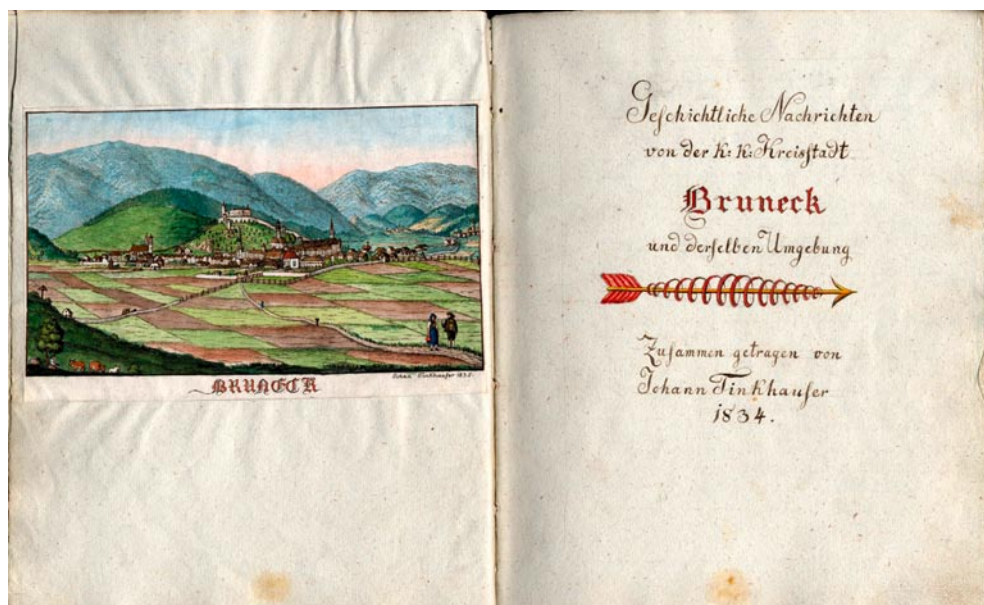 BRUNECK
Johann Tinkhauser 1835.
Geſchichtliche Nachrichten
von der K: K: Kreisſtadt
Bruneck
und derſelben Umgebung
Zuſammen getragen von
Johann Tinkhauſer
1834.